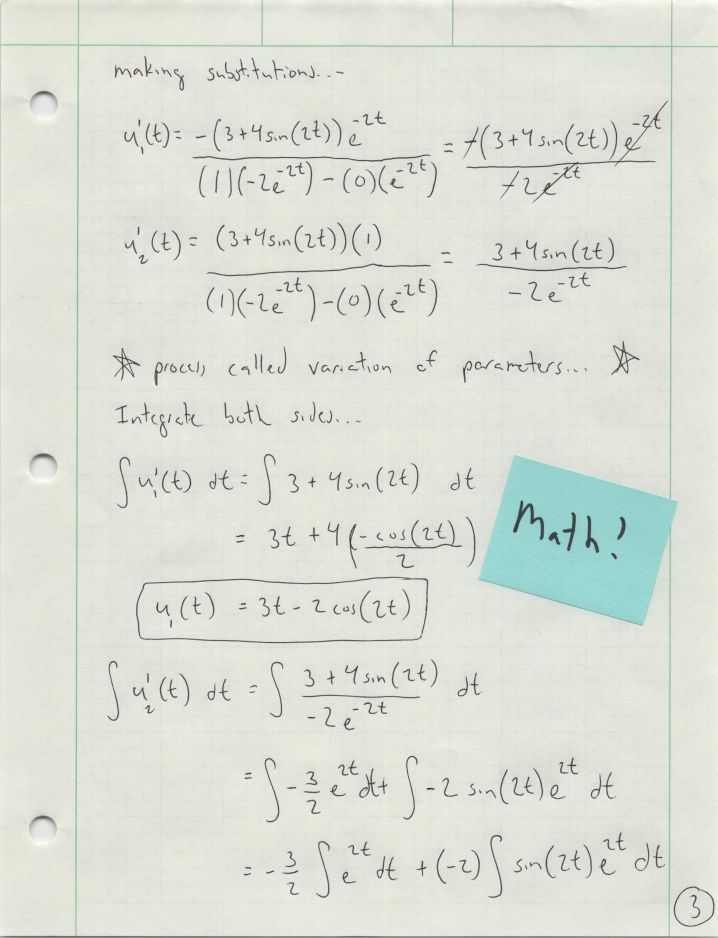 making substitutions...
u₁'(t) = -(3+4sin(2t))e^{-2t} / (1)(-2e^{-2t}) - (0)(e^{-2t}) = -(3+4sin(2t))e^{-2t} / -2e^{-2t}
u₂'(t) = (3+4sin(2t))(1) / (1)(-2e^{-2t}) - (0)(e^{-2t}) = 3+4sin(2t) / -2e^{-2t}
☆ process called variation of parameters... ☆
Integrate both sides...
∫ u₁'(t) dt = ∫ 3 + 4sin(2t) dt
= 3t + 4(-cos(2t) / 2)
Math!
u₁(t) = 3t - 2cos(2t)
∫ u₂'(t) dt = ∫ 3 + 4sin(2t) / -2e^{-2t} dt
= ∫ -3/2 e^{2t} dt + ∫ -2 sin(2t) e^{2t} dt
= -3/2 ∫ e^{2t} dt + (-2) ∫ sin(2t) e^{2t} dt
3